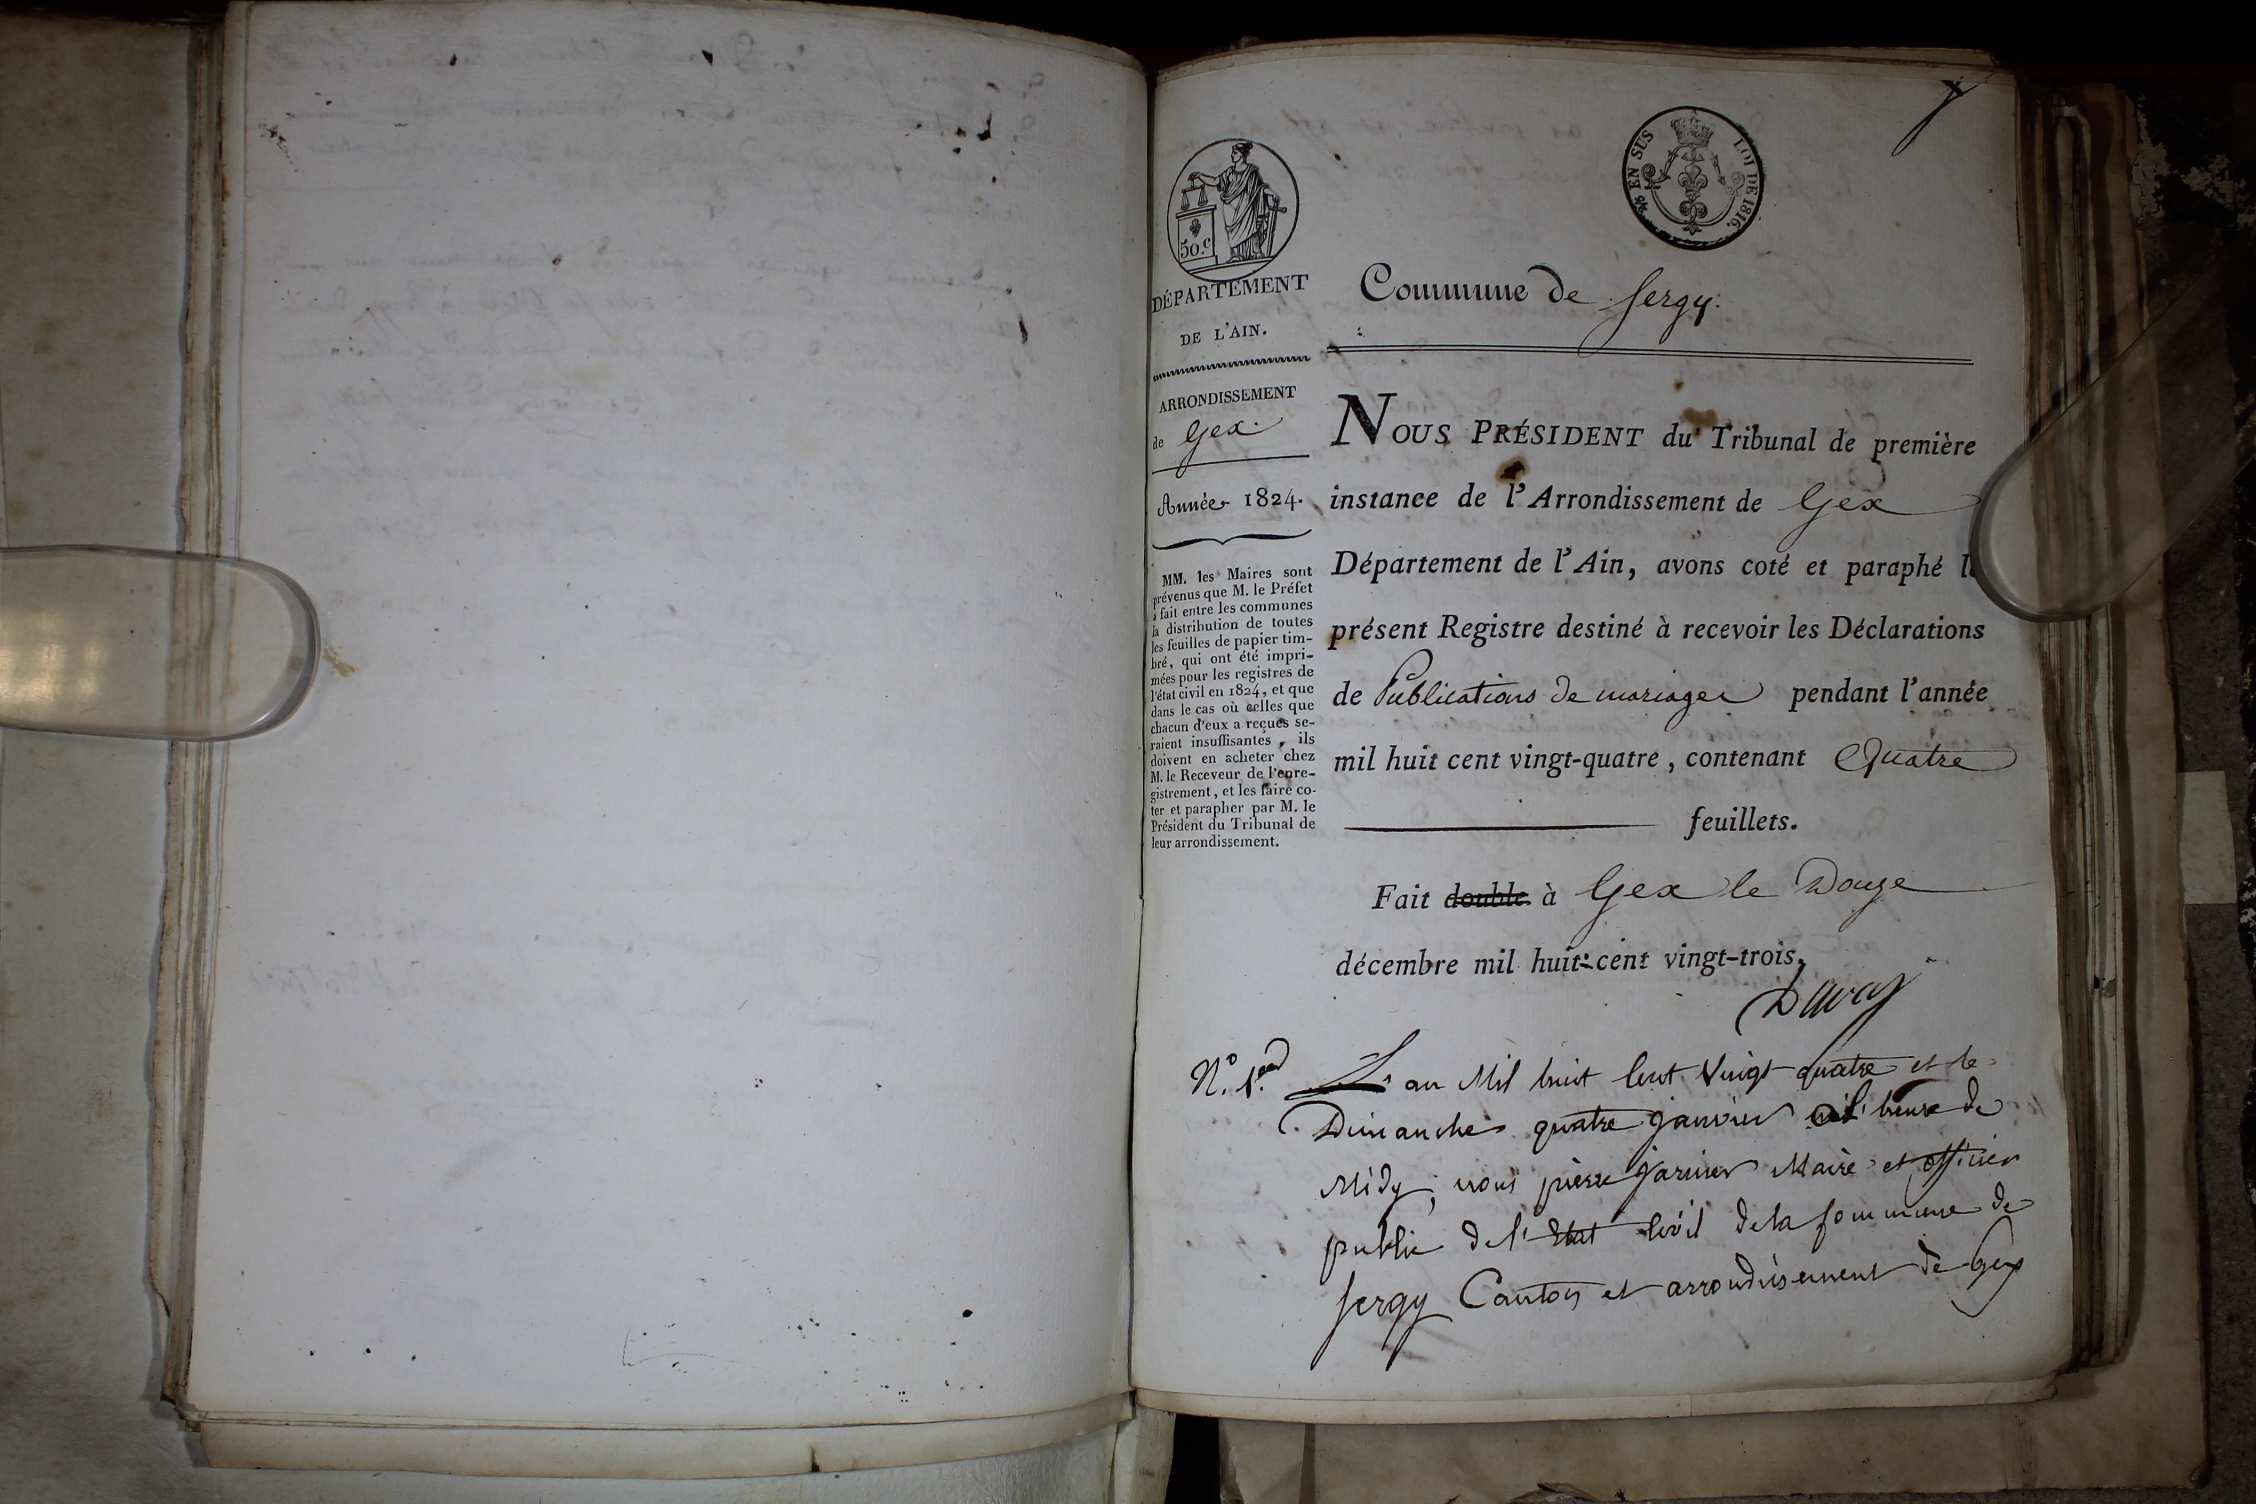 EN SUS
LOI DE 1816.
50.c
DÉPARTEMENT
DE L'AIN.
ARRONDISSEMENT
de Gex.
Année 1824.
MM. les Maires sont
prévenus que M. le Préfet
a fait entre les communes
la distribution de toutes
les feuilles de papier tim-
bré, qui ont été impri-
mées pour les registres de
l'état civil en 1824, et que
dans le cas où celles que
chacun d'eux a reçues se-
raient insuffisantes, ils
doivent en acheter chez
M. le Receveur de l'enre-
gistrement, et les faire co-
ter et parapher par M. le
Président du Tribunal de
leur arrondissement.
Commune de Sergy.
NOUS PRÉSIDENT du Tribunal de première
instance de l'Arrondissement de Gex
Département de l'Ain, avons coté et paraphé le
présent Registre destiné à recevoir les Déclarations
de Publications de mariages pendant l'année
mil huit cent vingt-quatre, contenant Quatre
feuillets.
Fait double à Gex le Douze
décembre mil huit cent vingt-trois.
N.o 1.er L'an Mil huit Cent Vingt quatre et le
Dimanche quatre janvier heure de
Midy, nous pierre Maire et officier
public de l'Etat Civil de la Commune de
Sergy Canton et arrondissement de Gex